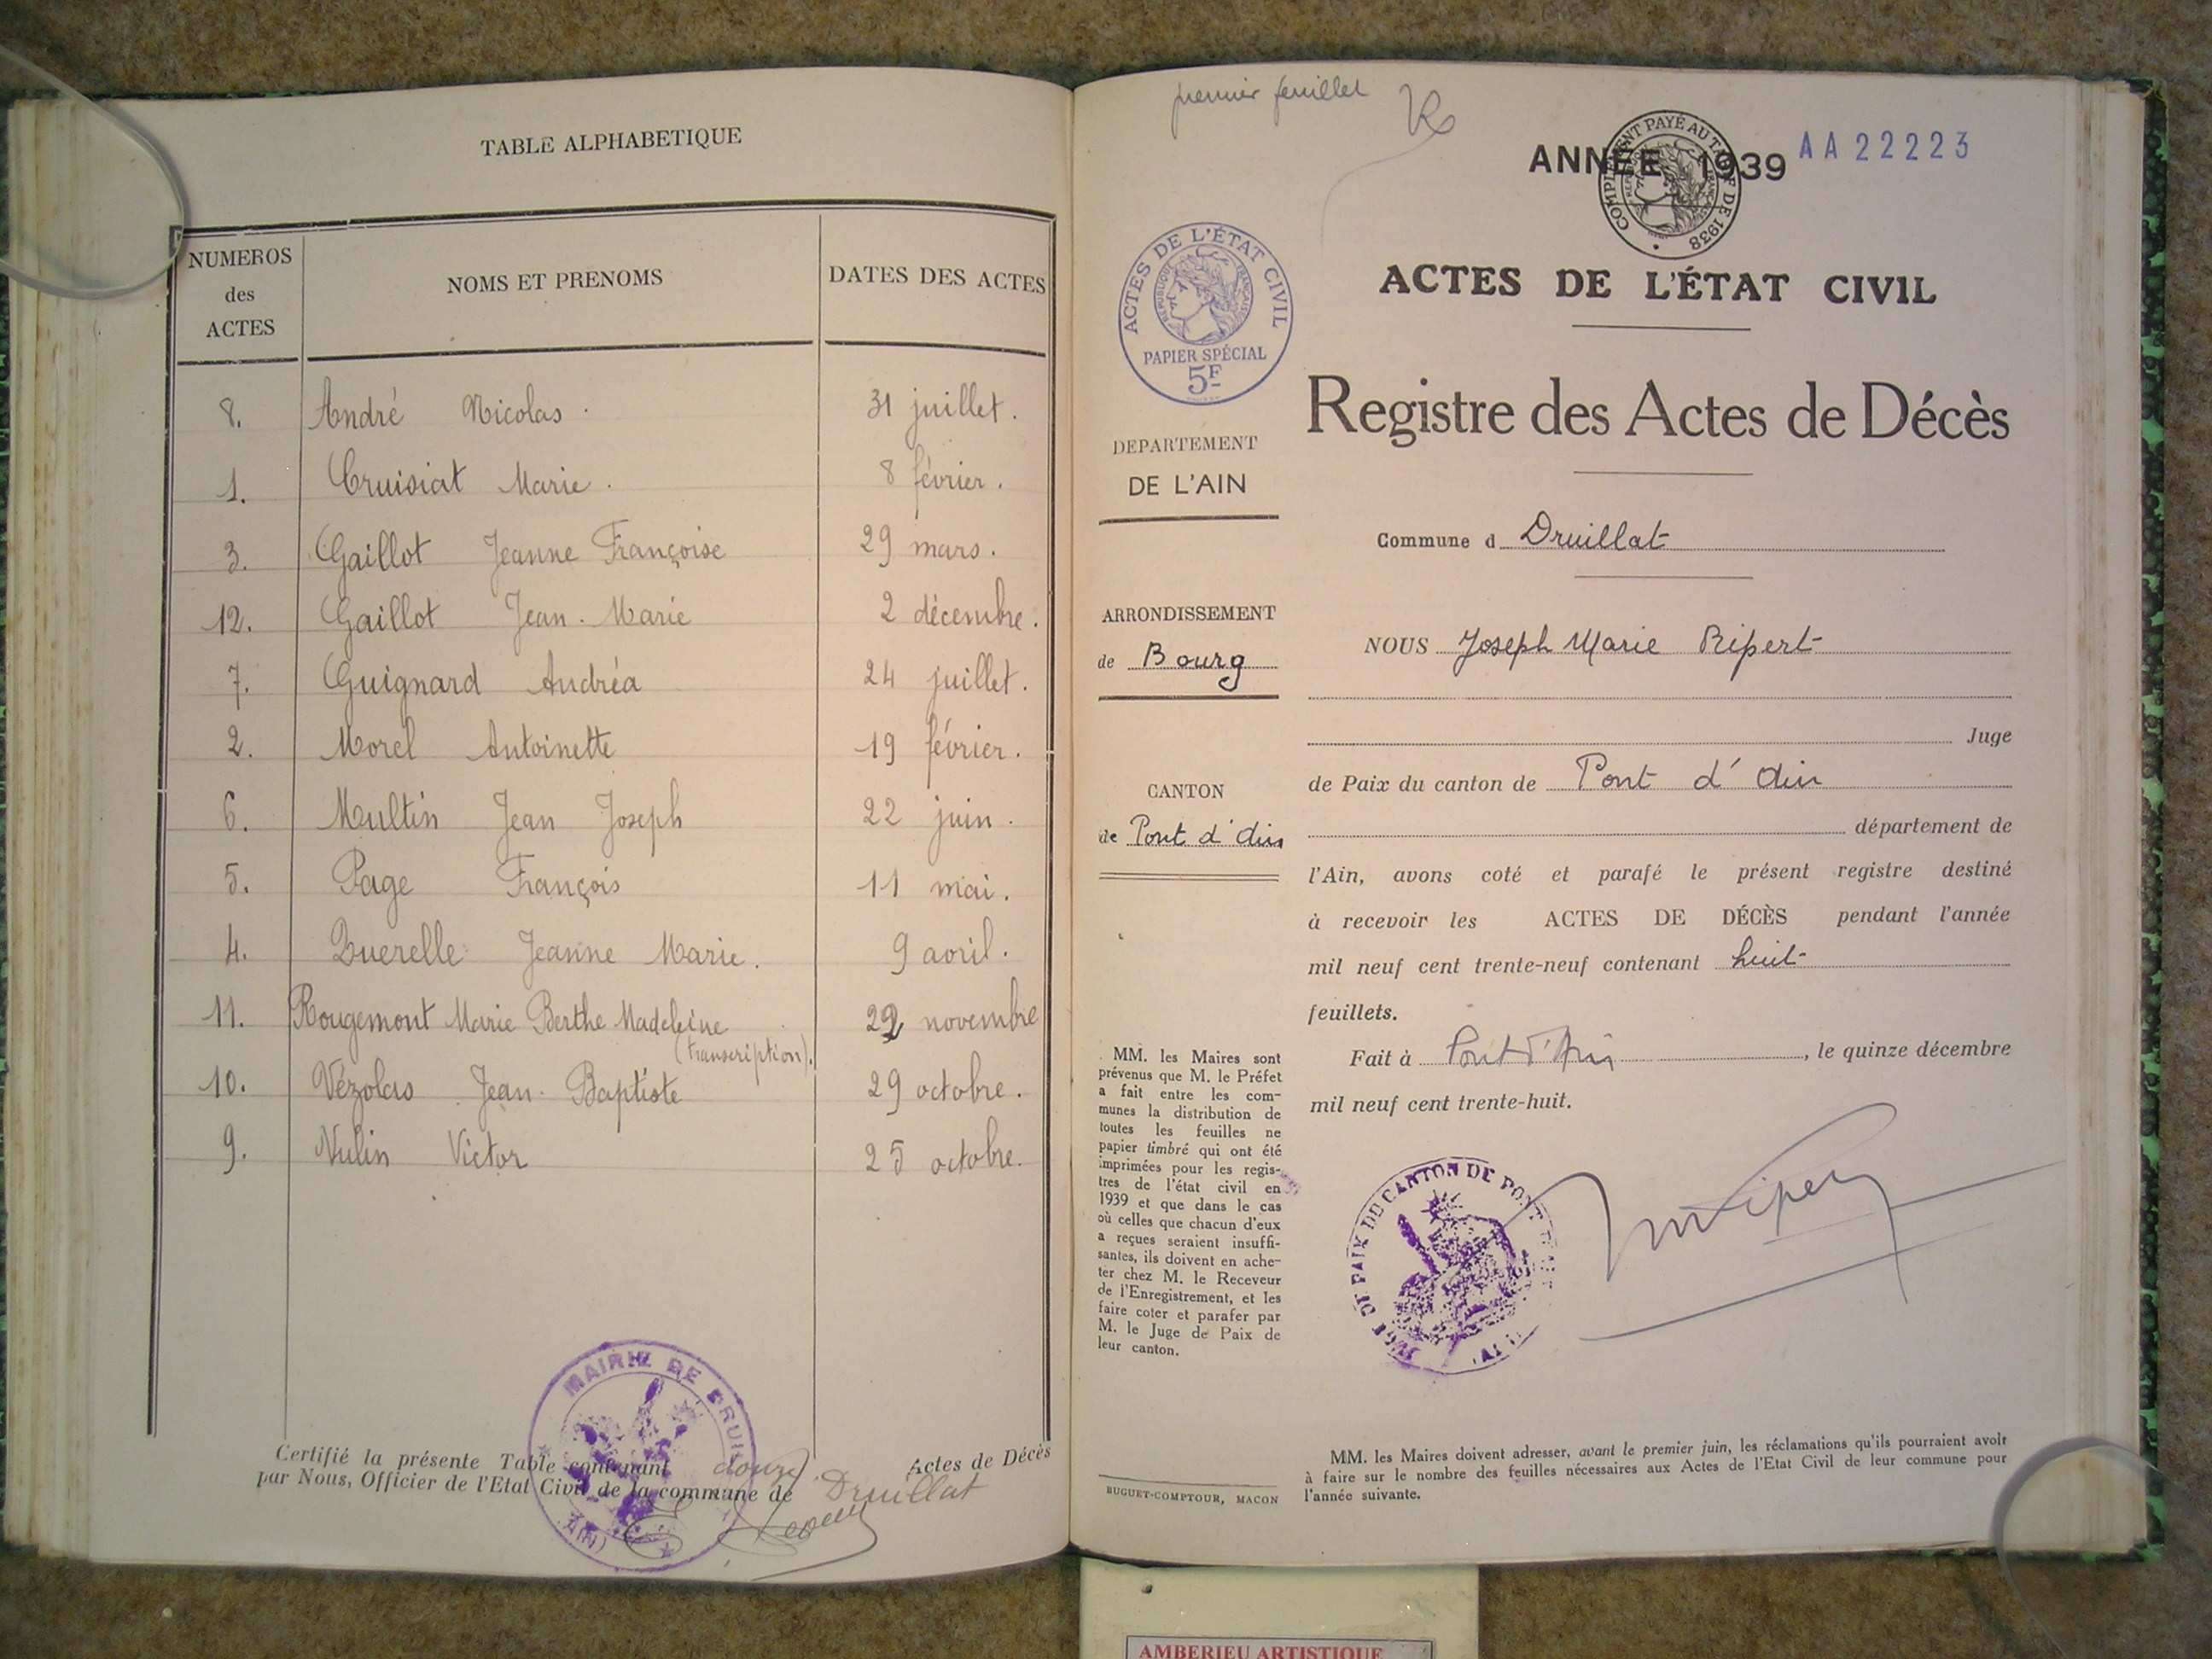 TABLE ALPHABETIQUE
NUMEROS
des
ACTES
NOMS ET PRENOMS
DATES DES ACTES
8. André Nicolas. 31 juillet.
1. Cruisiat Marie. 8 février.
3. Gaillot Jeanne Françoise 29 mars.
12. Gaillot Jean-Marie 2 décembre.
7. Guignard Andréa 24 juillet.
2. Morel Antoinette 19 février.
6. Multin Jean Joseph 22 juin.
5. Page François 11 mai.
4. Querelle Jeanne Marie. 9 avril.
11. Rougemont Marie Berthe Madeleine 22 novembre
(transcription).
10. Vézolas Jean-Baptiste 29 octobre.
9. Vulin Victor 25 octobre.
Certifié la présente Table contenant douze. Actes de Décès
par Nous, Officier de l'Etat Civil de la commune de Druillat
MAIRIE DE DRUILLAT
(AIN)
premier feuillet
ANNÉE 1939 AA22223
COMPLEMENT PAYÉ AU TARIF DE 1938
ACTES DE L'ÉTAT CIVIL
REPUBLIQUE FRANÇAISE
PAPIER SPÉCIAL
5F
ACTES DE L'ÉTAT CIVIL
Registre des Actes de Décès
DEPARTEMENT
DE L'AIN
Commune d Druillat
ARRONDISSEMENT
de Bourg
NOUS Joseph Marie Ripert
Juge
CANTON
de Pont d'Ain
de Paix du canton de Pont d'Ain
département de
l'Ain, avons coté et parafé le présent registre destiné
à recevoir les ACTES DE DÉCÈS pendant l'année
mil neuf cent trente-neuf contenant huit
feuillets.
Fait à Pont d'Ain, le quinze décembre
mil neuf cent trente-huit.
MM. les Maires sont
prévenus que M. le Préfet
a fait entre les com-
munes la distribution de
toutes les feuilles ne
papier timbré qui ont été
imprimées pour les regis-
tres de l'état civil en
1939 et que dans le cas
où celles que chacun d'eux
a reçues seraient insuffi-
santes, ils doivent en ache-
ter chez M. le Receveur
de l'Enregistrement, et les
faire coter et parafer par
M. le Juge de Paix de
leur canton.
BUGUET-COMPTOUR, MACON
MM. les Maires doivent adresser, avant le premier juin, les réclamations qu'ils pourraient avoir
à faire sur le nombre des feuilles nécessaires aux Actes de l'Etat Civil de leur commune pour
l'année suivante.
AMBERIEU ARTISTIQUE